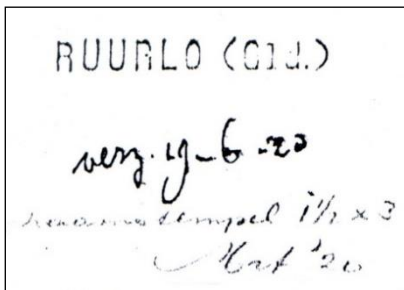 RUURLO (Gld.)
verz. 19-6-20
naamstempel 1½ x 3
Mrt '20